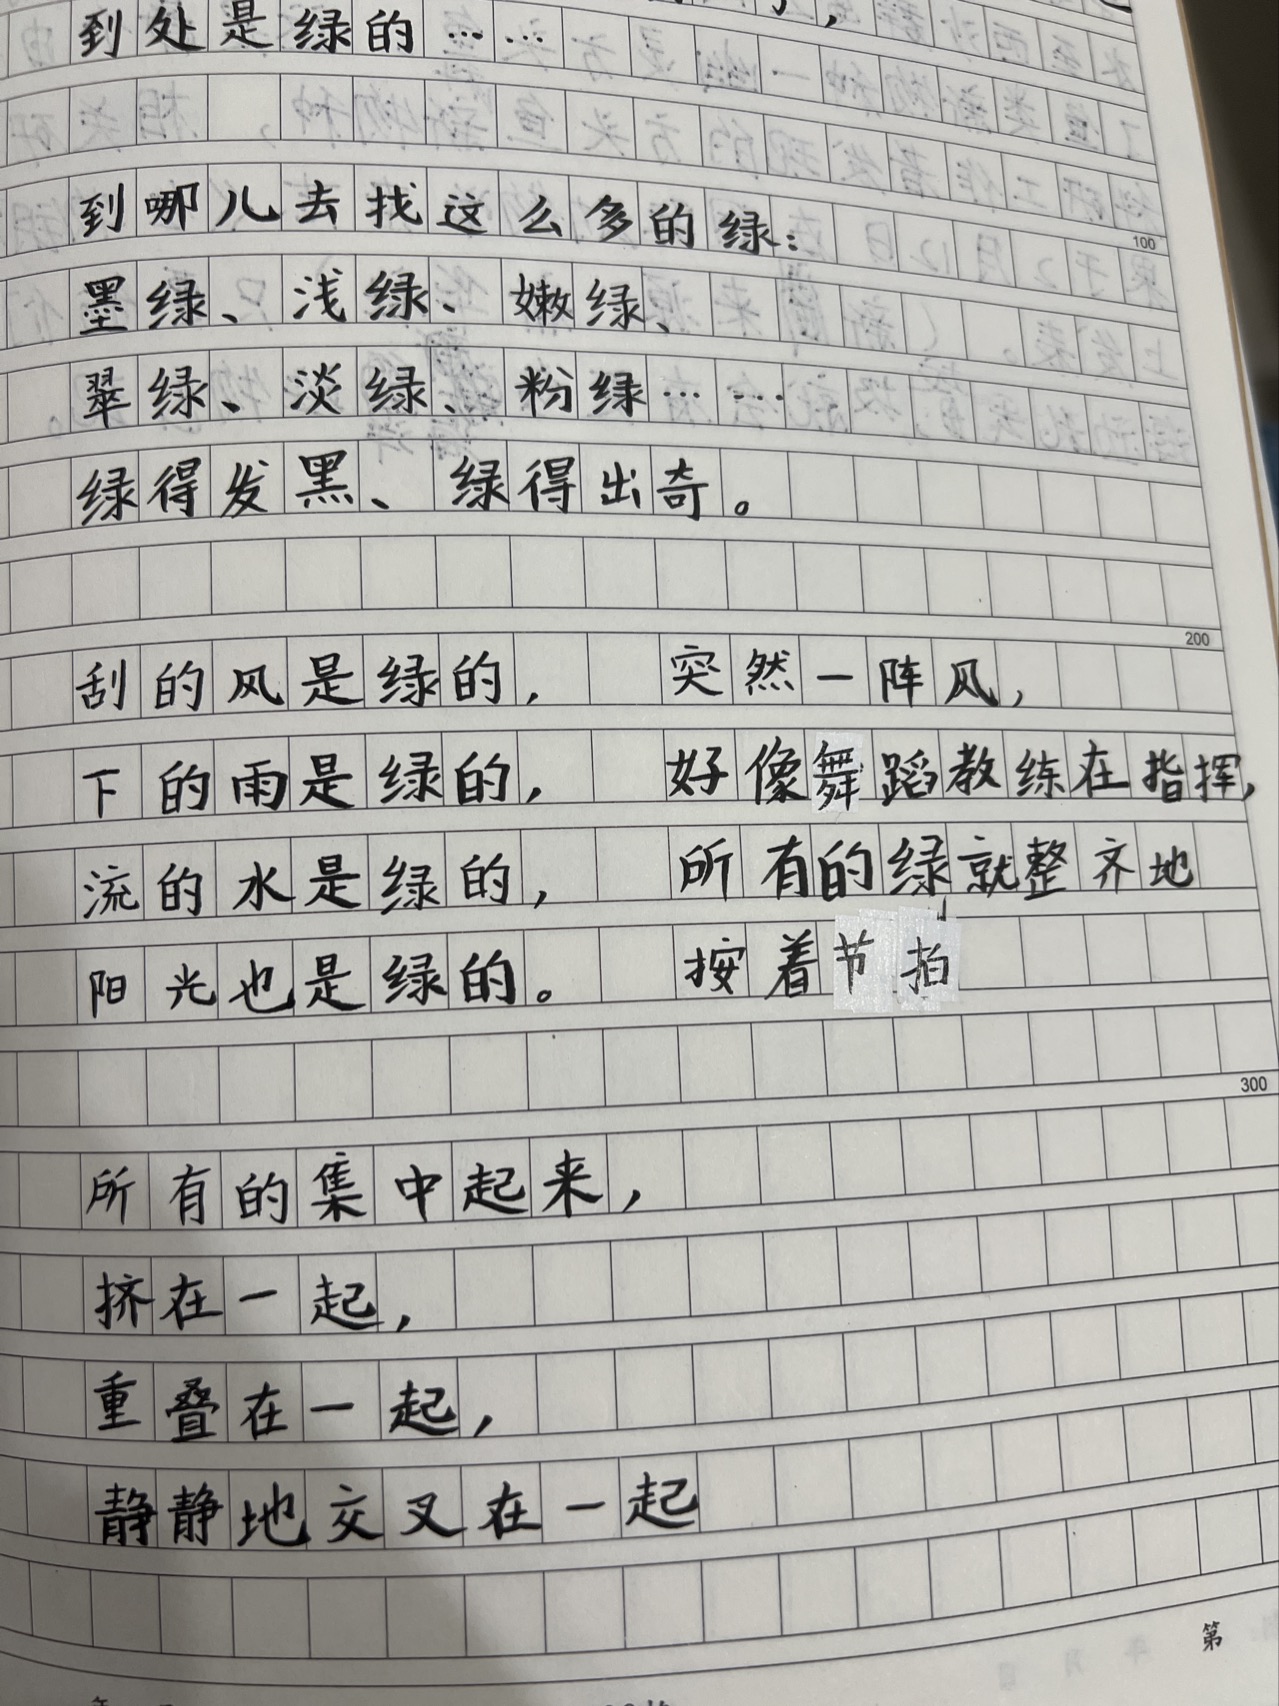 到处是绿的……
到哪儿去找这么多的绿：
墨绿、浅绿、嫩绿、
翠绿、淡绿、粉绿……
绿得发黑、绿得出奇。
100
刮的风是绿的，
下的雨是绿的，
流的水是绿的，
阳光也是绿的。
突然一阵风，
好像舞蹈教练在指挥，
所有的绿就整齐地
按着节拍
200
300
所有的集中起来，
挤在一起，
重叠在一起，
静静地交叉在一起
第